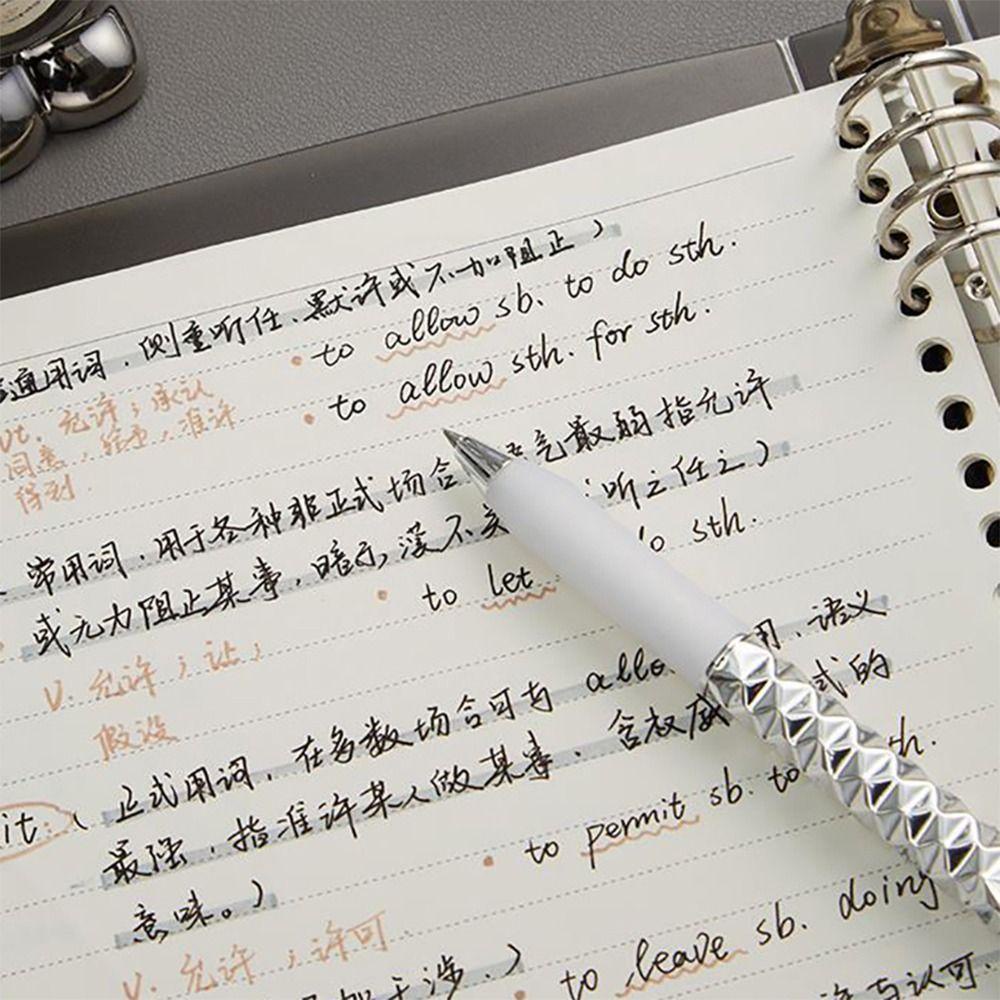 通用词.侧重听任、默许或不加阻止)
• to allow sb. to do sth.
vt. 允许;承认
同意,给予,准许
得到.
• to allow sth. for sth.
常用词.用于各种非正式场合 语气最弱指允许
或无力阻止某事,暗示没不 听之任之)
• to let do sth.
v. 允许;让;
假设
it:( 正式用词,在多数场合可与 allo 用.语义
最强,指准许某人做某事、含权威 式的
意味。)
• to permit sb. to th.
v. 允许;许可.
干涉.)
• to leave sb. doing
与认可.